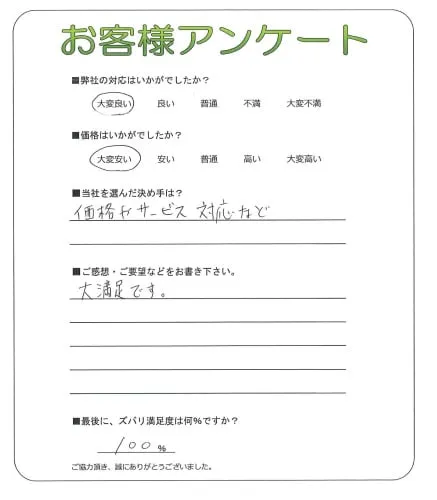 お客様アンケート
■弊社の対応はいかがでしたか？
大変良い 良い 普通 不満 大変不満
■価格はいかがでしたか？
大変安い 安い 普通 高い 大変高い
■当社を選んだ決め手は？
価格やサービス 対応など
■ご感想・ご要望などをお書き下さい。
大満足です。
■最後に、ズバリ満足度は何%ですか？
100%
ご協力頂き、誠にありがとうございました。